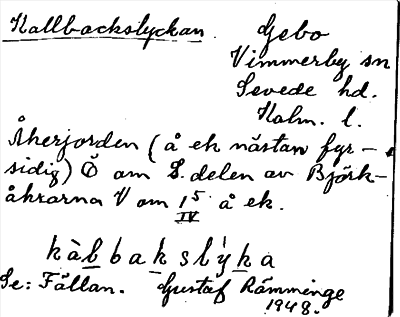 Kallbackslyckan. Gebo
Vimmerby sn
Sevede hd.
Kalm. l.
Åkerjorden (å ek nästan fyr-
sidig) Ö om S. delen av Björk-
åkrarna V om 15 å ek.
IV
kàlbakslýka
Se: Fällan. Gustaf Rämminge
1948.